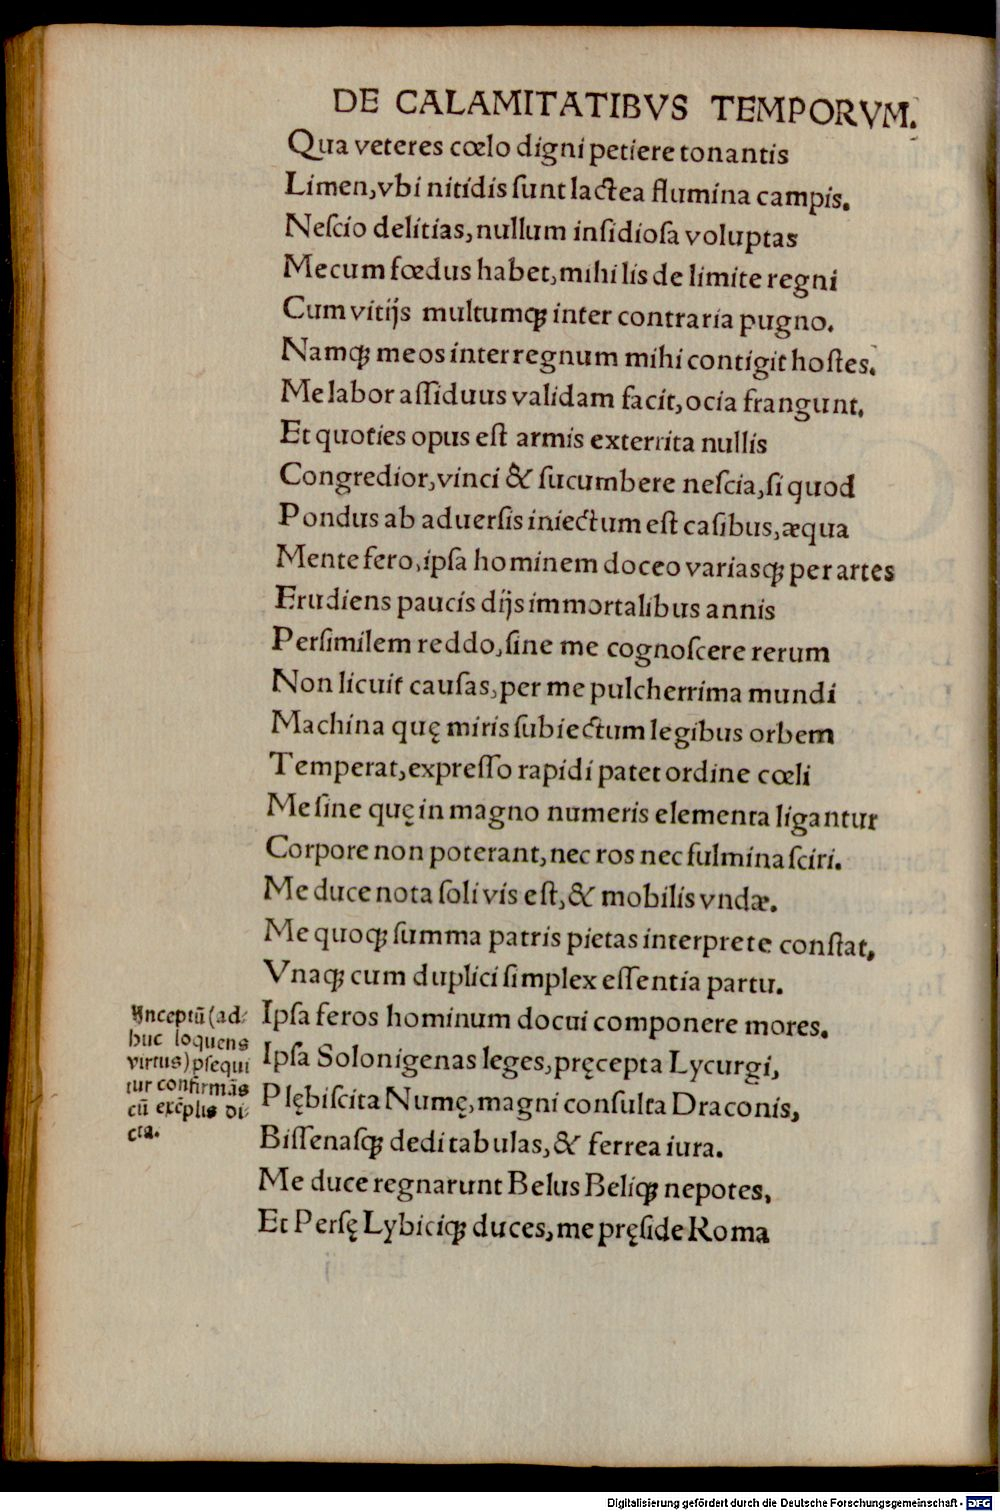 DE CALAMITATIBVS TEMPORVM.
Qua veteres cœlo digni petiere tonantis
Limen, vbi nitidis ſunt lactea flumina campis.
Neſcio delitias, nullum inſidioſa voluptas
Mecum fœdus habet, mihi lis de limite regni
Cum vitijs multumqꝫ inter contraria pugno.
Namqꝫ meos inter regnum mihi contigit hoſtes.
Me labor aſſiduus validam facit, ocia frangunt.
Et quoties opus eſt armis exterrita nullis
Congredior, vinci & ſucumbere neſcia, ſi quod
Pondus ab aduerſis iniectum eſt caſibus, æqua
Mente fero, ipſa hominem doceo variasqꝫ per artes
Erudiens paucis dijs immortalibus annis
Perſimilem reddo, ſine me cognoſcere rerum
Non licuit cauſas, per me pulcherrima mundi
Machina quę miris ſubiectum legibus orbem
Temperat, expreſſo rapidi patet ordine cœli
Me ſine quę in magno numeris elementa ligantur
Corpore non poterant, nec ros nec fulmina ſciri.
Me duce nota ſoli vis eſt, & mobilis vndæ.
Me quoqꝫ ſumma patris pietas interprete conſtat,
Vnaqꝫ cum duplici ſimplex eſſentia partu.
Ipſa feros hominum docui componere mores.
Ipſa Solonigenas leges, pręcepta Lycurgi,
Plębiſcita Numę, magni conſulta Draconis,
Biſſenaſqꝫ dedi tabulas, & ferrea iura.
Me duce regnarunt Belus Beliqꝫ nepotes,
Et Perſę Lybiciqꝫ duces, me pręſide Roma
Inceptū (ad-
huc loquens
virtus) ꝓſequi
tur confirmās
cū exēplis di-
cta.
Digitalisierung gefördert durch die Deutsche Forschungsgemeinschaft - DFG